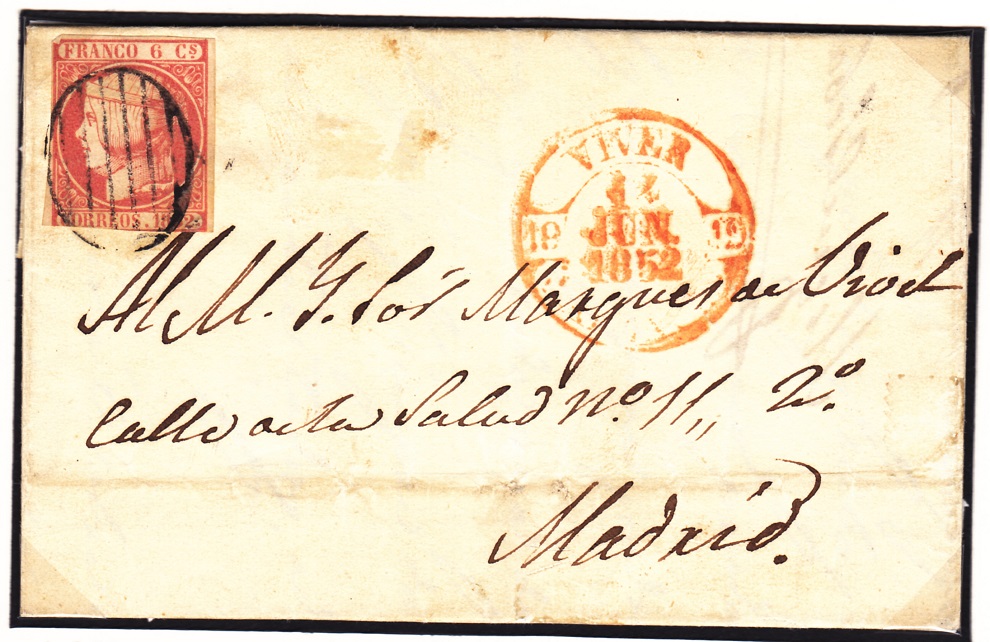 FRANCO 6 Cs
CORREOS. 1852.
VIVER
14
JUN.
1852
19 19
Al M. Y. Sor Marques de
Calle de la Salud nº 11,, 2º.
Madrid.